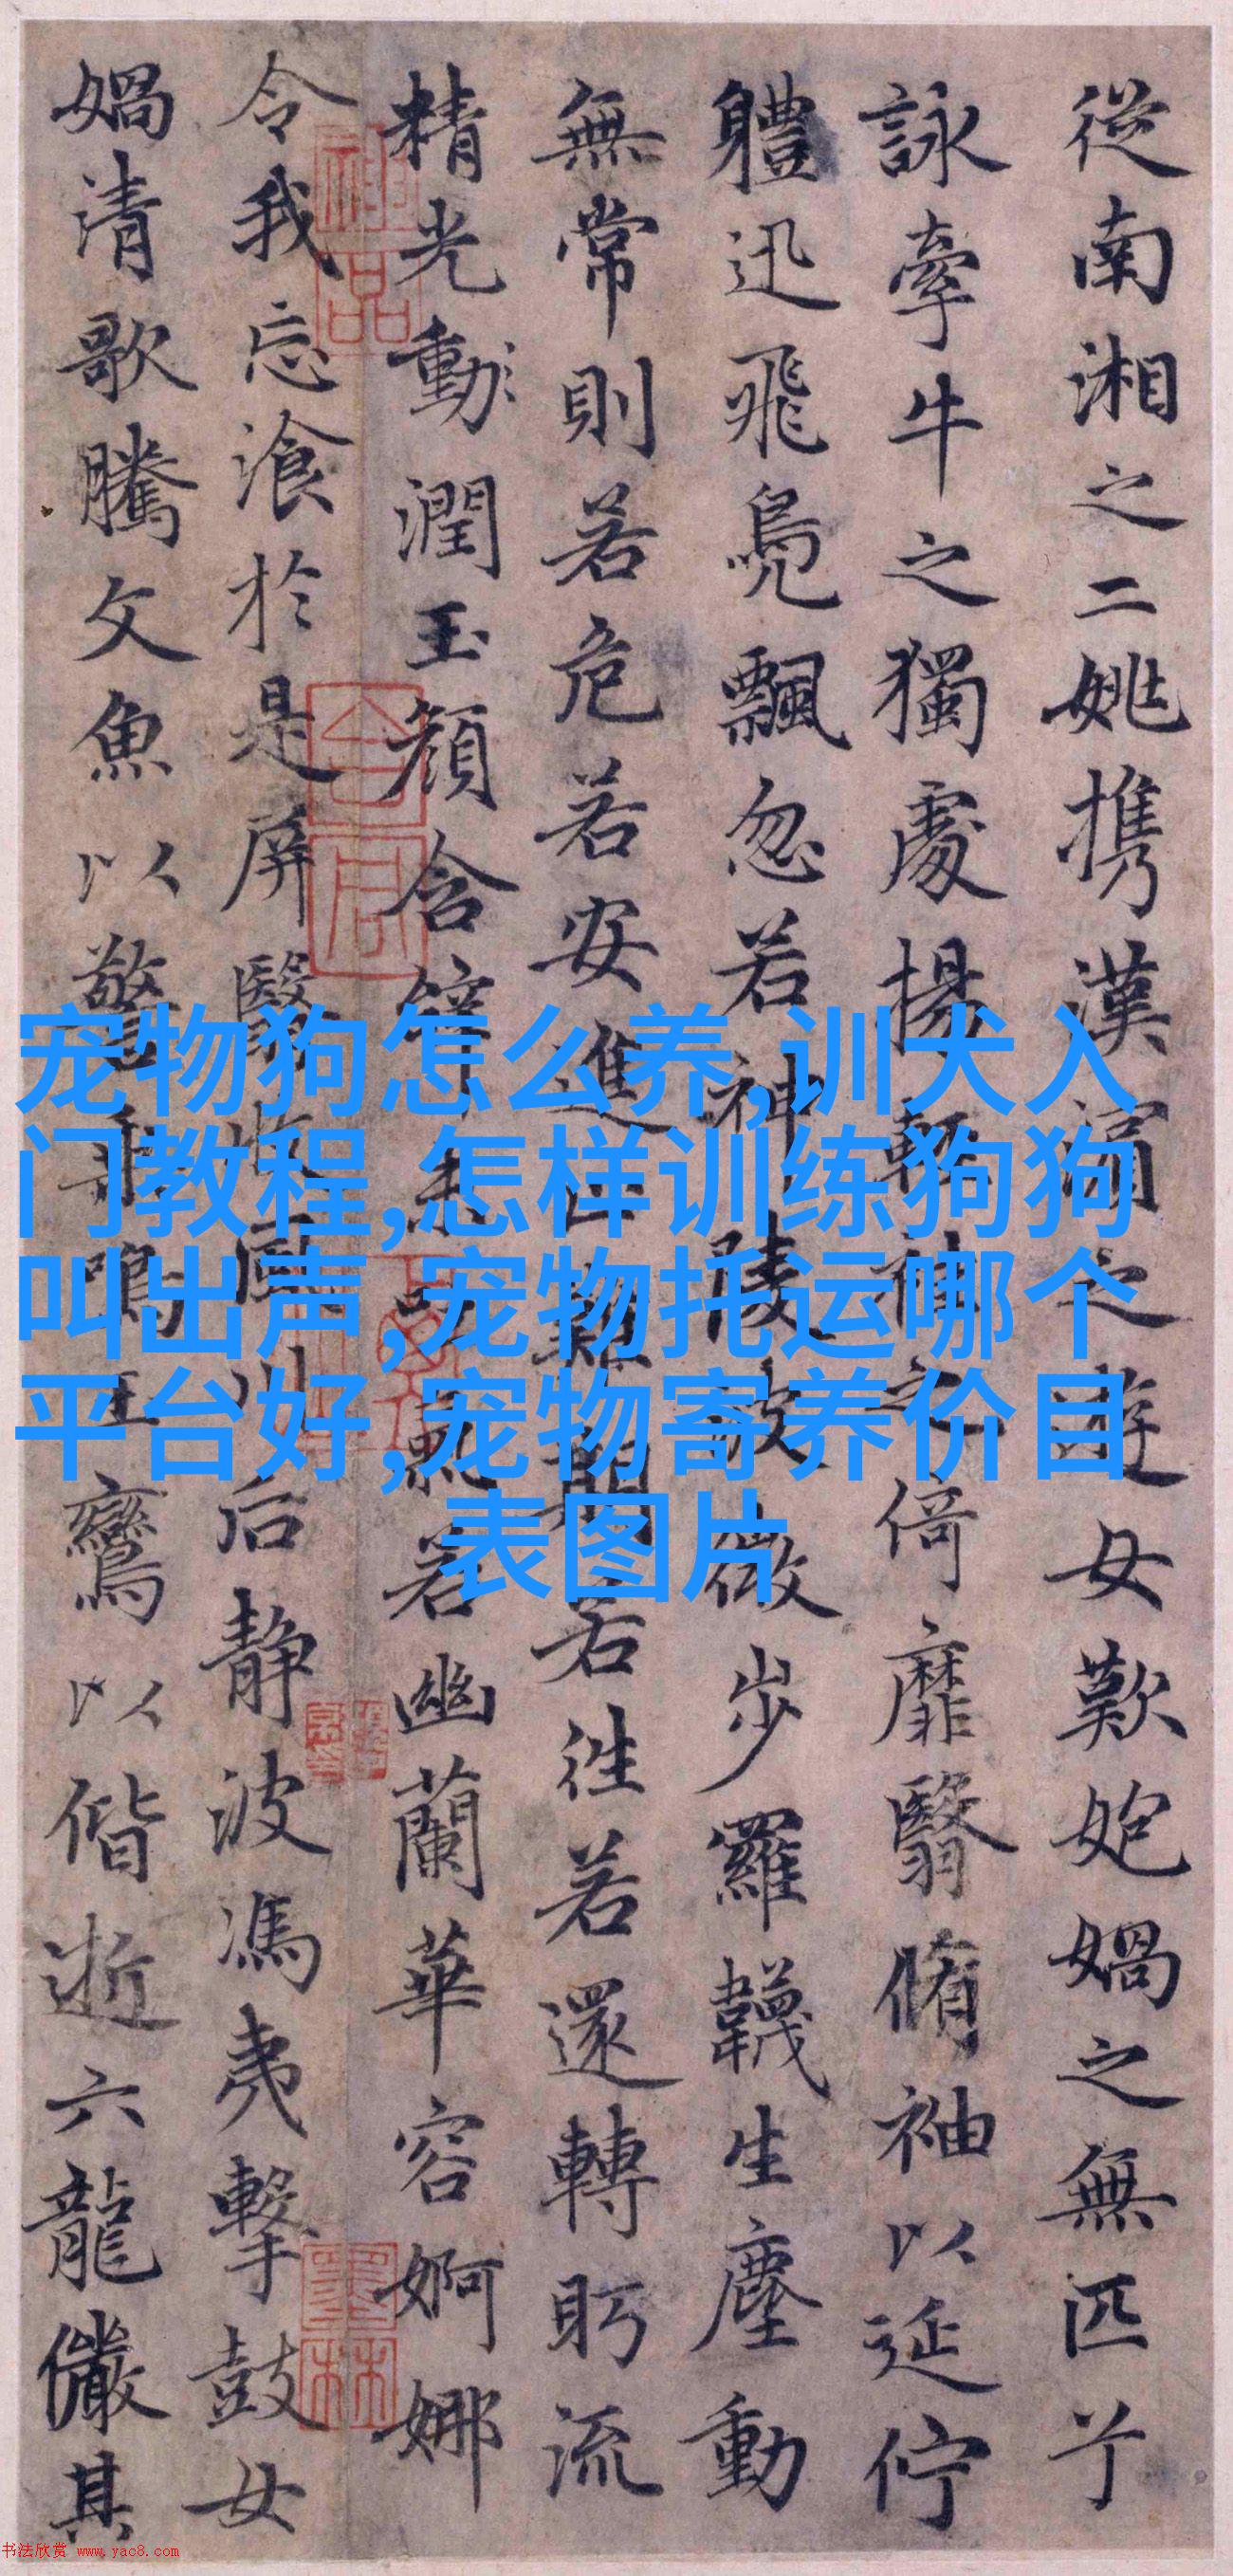 從南湘之二姚携漢濱之遊女歎匏媧之無匹兮
詠牽牛之獨處揚輕袿之倚靡翳脩袖以延佇
軆迅飛鳧飄忽若神陵波微步羅韈生塵動
無常則若危若安進止難期若往若還轉眄流
精光動潤玉顏含辭未吐氣若幽蘭華容婀娜
令我忘飡於是屏翳收風川后静波馮夷擊鼓女
媧清歌騰文魚以警乘鳴玉鸞以偕逝六龍儼其
宠物狗怎么养,训犬入
门教程,怎样训练狗狗
叫出声,宠物托运哪个
平台好,宠物寄养价目
表图片
神品
墨林
书法欣赏 www.yac8.com